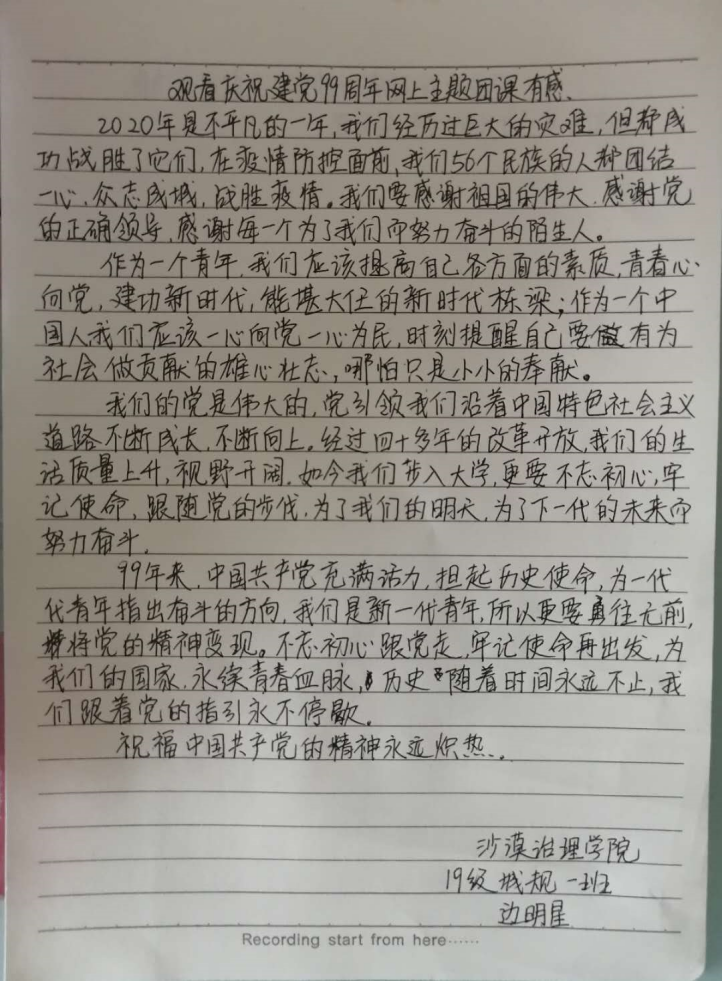 观看庆祝建党99周年网上主题团课有感、
2020年是不平凡的一年,我们经历过巨大的灾难,但都成
功战胜了它们,在疫情防控面前,我们56个民族的人都团结
一心,众志成城,战胜疫情。我们要感谢祖国的伟大,感谢党
的正确领导,感谢每一个为了我们而努力奋斗的陌生人。
作为一个青年,我们应该提高自己各方面的素质,青春心
向党,建功新时代,能堪大任的新时代栋梁;作为一个中
国人我们应该一心向党一心为民,时刻提醒自己要做有为
社会做贡献的雄心壮志,哪怕只是小小的奉献。
我们的党是伟大的,党引领我们沿着中国特色社会主义
道路不断成长,不断向上。经过四十多年的改革开放,我们的生
活质量上升,视野开阔,如今我们步入大学,更要不忘初心,牢
记使命,跟随党的步伐,为了我们的明天,为了下一代的未来而
努力奋斗.
99年来,中国共产党充满活力,担起历史使命,为一代
代青年指出奋斗的方向,我们是新一代青年,所以更要勇往无前,
将党的精神变现。不忘初心跟党走,牢记使命再出发,为
我们的国家,永续青春血脉,历史随着时间永远不止,我
们跟着党的指引永不停歇。
祝福中国共产党的精神永远炽热..
沙漠治理学院
19级城规一班
边明星
Recording start from here······